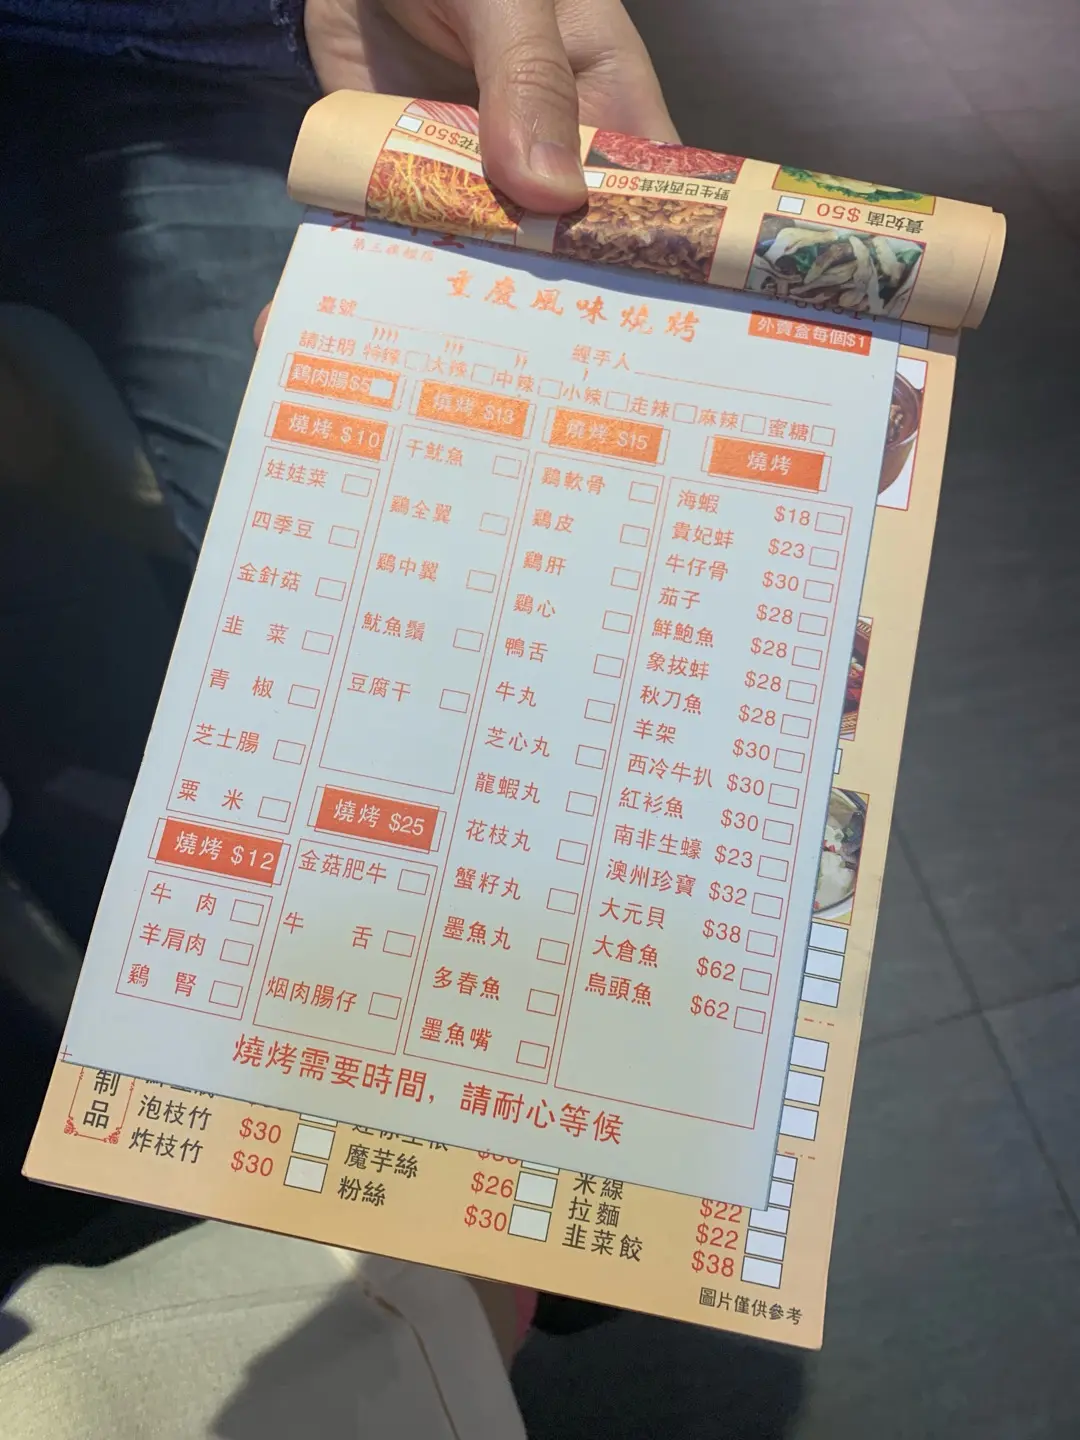 $50
$60
野生巴西松茸
貴妃菌 $50
第三旗艦店
重慶風味燒烤
外賣盒每個$1
臺號
經手人
請注明 特辣 大辣 中辣 小辣 走辣 麻辣 蜜糖
鷄肉腸$5
燒烤 $10
娃娃菜
四季豆
金針菇
韭 菜
青 椒
芝士腸
粟 米
燒烤 $12
牛 肉
羊肩肉
鷄 腎
燒烤 $13
干魷魚
鷄全翼
鷄中翼
魷魚鬚
豆腐干
燒烤 $25
金菇肥牛
牛 舌
烟肉腸仔
燒烤 $15
鷄軟骨
鷄皮
鷄肝
鷄心
鴨舌
牛丸
芝心丸
龍蝦丸
花枝丸
蟹籽丸
墨魚丸
多春魚
墨魚嘴
燒烤
海蝦 $18
貴妃蚌 $23
牛仔骨 $30
茄子 $28
鮮鮑魚 $28
象拔蚌 $28
秋刀魚 $28
羊架 $30
西冷牛扒 $30
紅衫魚 $30
南非生蠔 $23
澳州珍寶 $32
大元貝 $38
大倉魚 $62
烏頭魚 $62
燒烤需要時間，請耐心等候
制品
泡枝竹 $30
炸枝竹 $30
魔芋絲 $26
粉絲 $30
米線 $22
拉麵 $22
韭菜餃 $38
圖片僅供參考